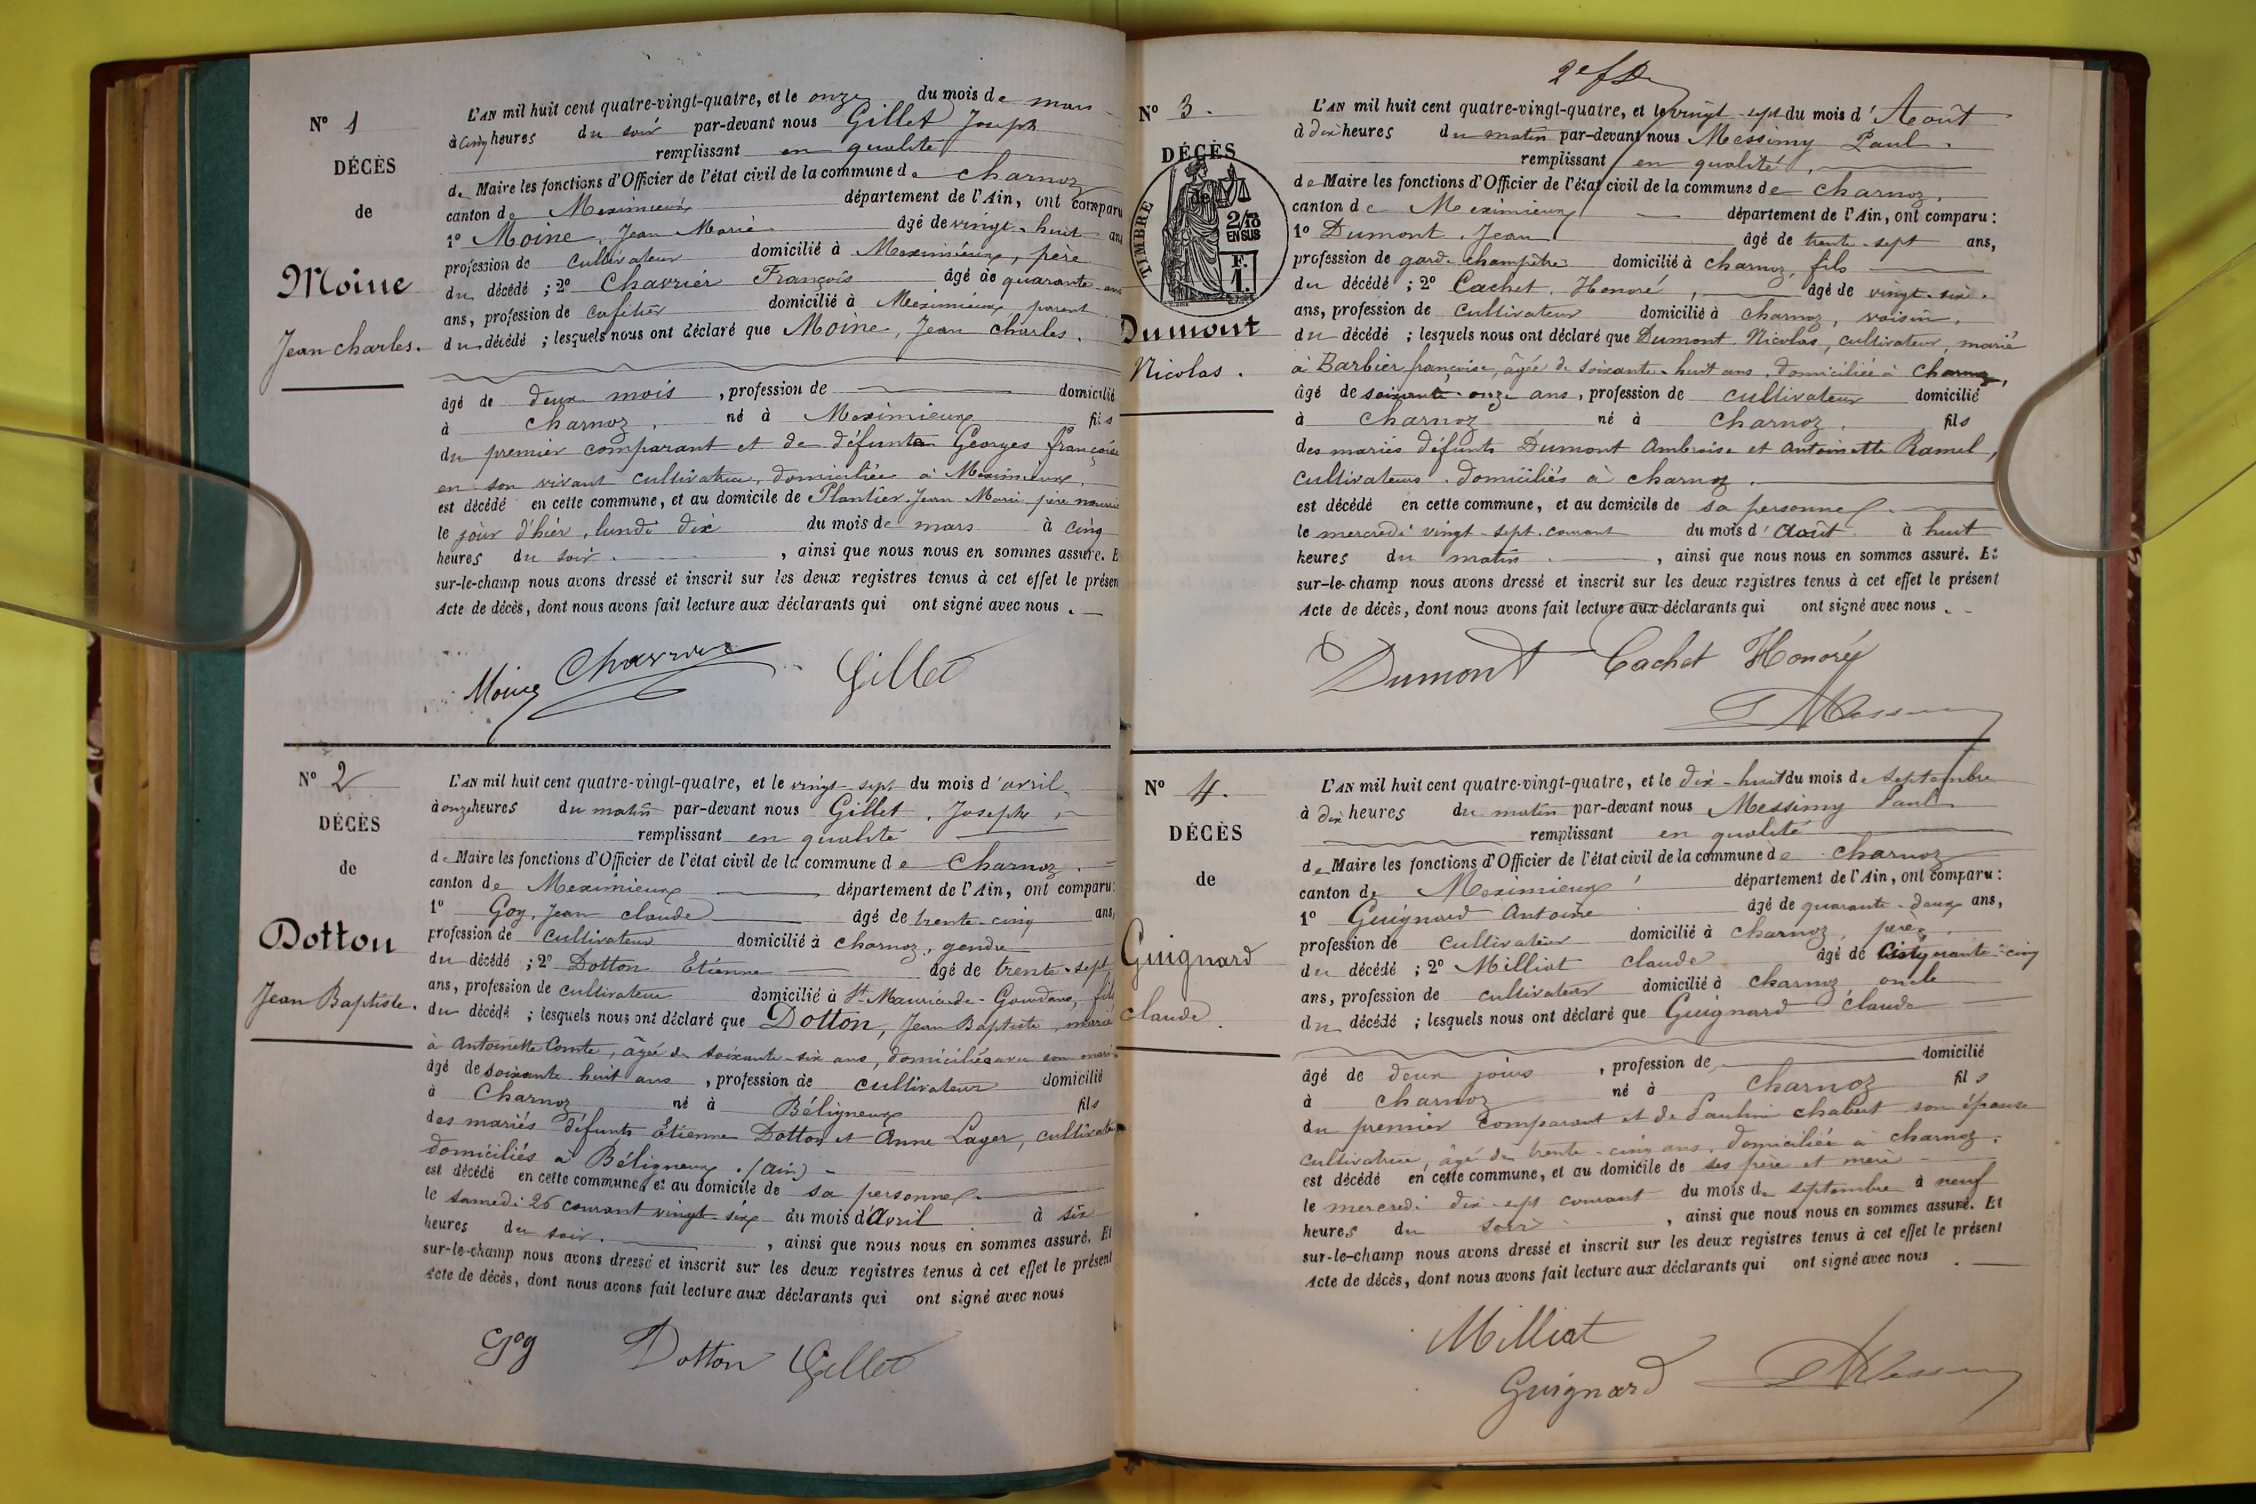 N° 1
DÉCÈS
de
Moine
Jean Charles.
L'AN mil huit cent quatre-vingt-quatre, et le onze du mois de mars
à cinq heures du soir par-devant nous Gillet Joseph
remplissant en qualité
de Maire les fonctions d'Officier de l'état civil de la commune de Charnoz
canton de Meximieux département de l'Ain, ont comparu
1° Moine, Jean Marie âgé de vingt-huit ans
profession de cultivateur domicilié à Meximieux, père
du décédé ; 2° Chavrier François âgé de quarante ans
ans, profession de cafetier domicilié à Meximieux, parent
du décédé ; lesquels nous ont déclaré que Moine, Jean Charles.
âgé de deux mois, profession de domicilié
à Charnoz, né à Meximieux fils
du premier comparant et de défunte Georges françoise
en son vivant cultivatrice, domiciliée à Meximieux.
est décédé en cette commune, et au domicile de Plantier, Jean Marie père nourricier
le jour d'hier, lundi dix du mois de mars à cinq
heures du soir, ainsi que nous nous en sommes assuré. E
sur-le-champ nous avons dressé et inscrit sur les deux registres tenus à cet effet le présen
Acte de décès, dont nous avons fait lecture aux déclarants qui ont signé avec nous.
Moine Chavrier Gillet
N° 2
DÉCÈS
de
Dotton
Jean Baptiste.
L'AN mil huit cent quatre-vingt-quatre, et le vingt-sept du mois d'avril
à onze heures du matin par-devant nous Gillet, Joseph
remplissant en qualité
de Maire les fonctions d'Officier de l'état civil de la commune de Charnoz.
canton de Meximieux département de l'Ain, ont comparu:
1° Goy, Jean Claude âgé de trente-cinq ans,
profession de cultivateur domicilié à Charnoz, gendre
du décédé ; 2° Dotton Etienne âgé de trente-sept
ans, profession de cultivateur domicilié à St Maurice de Gourdans, fils
du décédé ; lesquels nous ont déclaré que Dotton, Jean Baptiste, marié
à Antoinette Comte, âgée de soixante-six ans, domiciliée avec son mari
âgé de soixante huit ans, profession de cultivateur domicilié
à Charnoz né à Béligneux fils
des mariés défunts Étienne Dotton et Anne Layer, cultivateurs
domiciliés à Béligneux. (ain)
est décédé en cette commune, et au domicile de sa personne.
le samedi 26 courant vingt-six du mois d'Avril à six
heures du soir., ainsi que nous nous en sommes assuré. Et
sur-le-champ nous avons dressé et inscrit sur les deux registres tenus à cet effet le présent
Acte de décès, dont nous avons fait lecture aux déclarants qui ont signé avec nous
Goy Dotton Gillet
N° 3.
DÉCÈS
de
TIMBRE
2/10
EN SUS
F.
1.
Dumont
Nicolas.
L'AN mil huit cent quatre-vingt-quatre, et le vingt-sept du mois d'Août
à dix heures du matin par-devant nous Messimy Paul.
remplissant en qualité,
de Maire les fonctions d'Officier de l'état civil de la commune de Charnoz.
canton de Meximieux département de l'Ain, ont comparu:
1° Dumont Jean âgé de trente-sept ans,
profession de garde-champêtre domicilié à Charnoz, fils
du décédé ; 2° Cachet Honoré, âgé de vingt-six.
ans, profession de cultivateur domicilié à Charnoz, voisin.
du décédé ; lesquels nous ont déclaré que Dumont Nicolas, cultivateur, marié
à Barbier françoise, âgée de soixante-huit ans, domiciliée à Charnoz,
âgé de soixante-onze ans, profession de cultivateur domicilié
à Charnoz né à Charnoz, fils
des mariés défunts Dumont Ambroise et Antoinette Ramel,
cultivateurs domiciliés à Charnoz.
est décédé en cette commune, et au domicile de sa personne
le mercredi vingt-sept courant du mois d'Août à huit
heures du matin, ainsi que nous nous en sommes assuré. Et
sur-le-champ nous avons dressé et inscrit sur les deux registres tenus à cet effet le présent
Acte de décès, dont nous avons fait lecture aux déclarants qui ont signé avec nous.
Dumont Cachet Honoré
N° 4.
DÉCÈS
de
Guignard
Claude.
L'AN mil huit cent quatre-vingt-quatre, et le dix-huit du mois de septembre
à dix heures du matin par-devant nous Messimy Paul
remplissant en qualité
de Maire les fonctions d'Officier de l'état civil de la commune de Charnoz
canton de Meximieux département de l'Ain, ont comparu:
1° Guignard Antoine âgé de quarante-deux ans,
profession de cultivateur domicilié à Charnoz, père
du décédé ; 2° Milliat Claude âgé de cinquante-cinq
ans, profession de cultivateur domicilié à Charnoz, oncle
du décédé ; lesquels nous ont déclaré que Guignard Claude
âgé de deux jours, profession de domicilié
à Charnoz né à Charnoz fils
du premier comparant et de Pauline Chabert son épouse
cultivatrice, âgée de trente-cinq ans, domiciliée à Charnoz.
est décédé en cette commune, et au domicile de ses père et mère
le mercredi dix-sept courant du mois de septembre à neuf
heures du soir, ainsi que nous nous en sommes assuré. Et
sur-le-champ nous avons dressé et inscrit sur les deux registres tenus à cet effet le présent
Acte de décès, dont nous avons fait lecture aux déclarants qui ont signé avec nous.
Milliat
Guignard